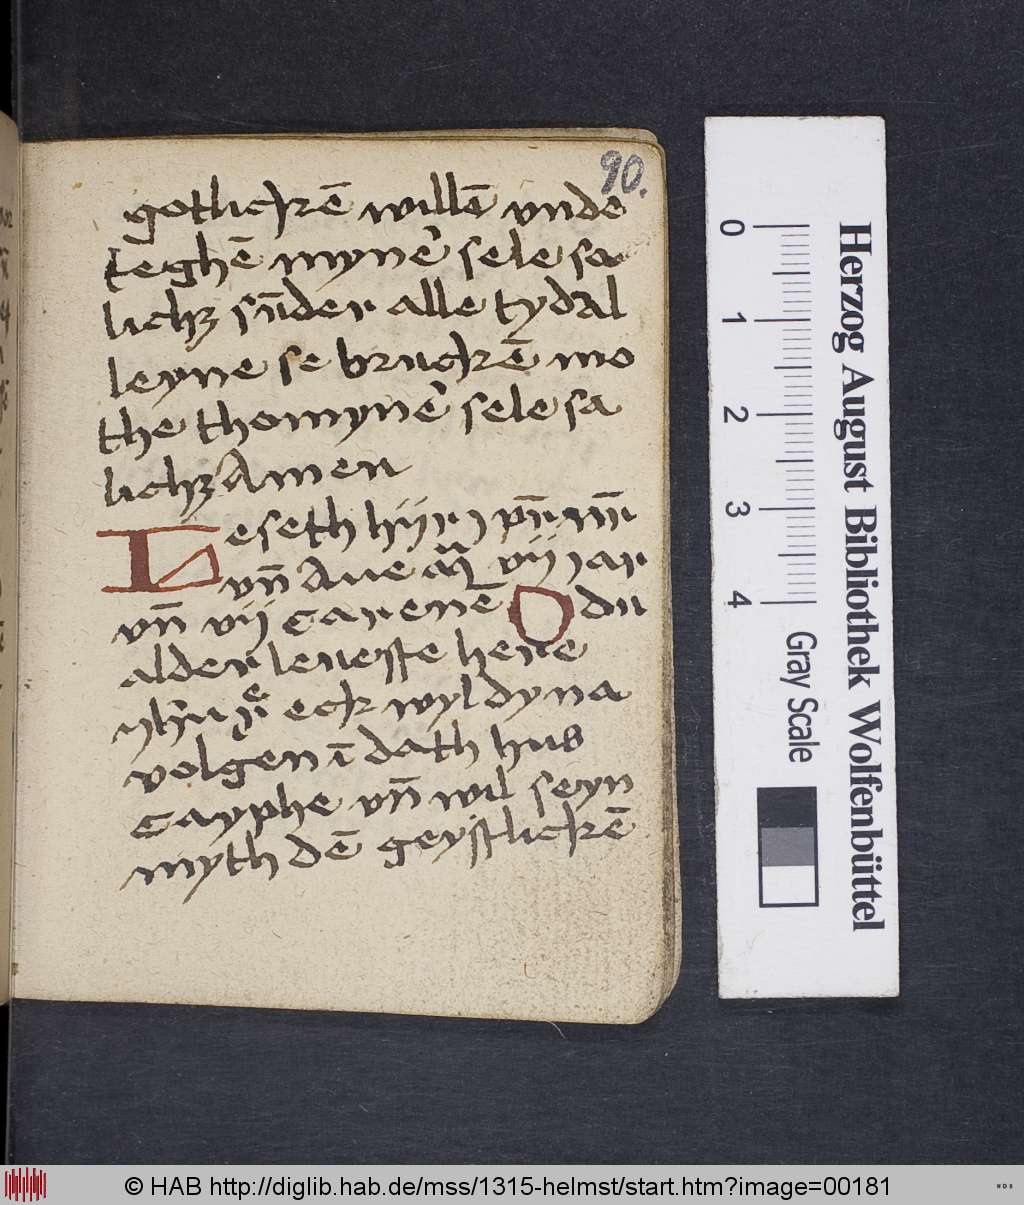 90.
gotlickē willē vnde
teghē mynē sele sa
lichz sn̄der alle tyd al
leyne se bruckē mo
the tho mynē sele sa
lichz Amen
Leseth hijr j pn̄r nr̄
vn̄ Aue ma vij jar
vn̄ vij carene O du
alder leueste here
eck wyl dy na
volgen ī dath hus
cayphe vn̄ wil seyn
myth dē geystlickē
Herzog August Bibliothek Wolfenbüttel
0 1 2 3 4 Gray Scale
© HAB http://diglib.hab.de/mss/1315-helmst/start.htm?image=00181